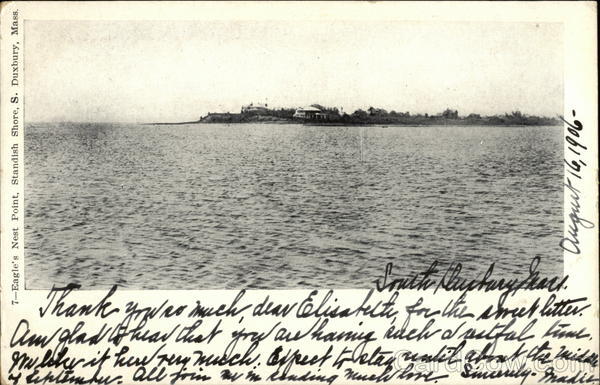 7—Eagle's Nest Point, Standish Shore, S. Duxbury, Mass.
August 16, 1906-
South Duxbury, Mass.
Thank you so much, dear Elisabeth, for the sweet letter.
Am glad to hear that you are having such a restful time.
We like it here very much. Expect to stay until about the middle
of September. All join me in sending much love. Sincerely-
CardCow.com